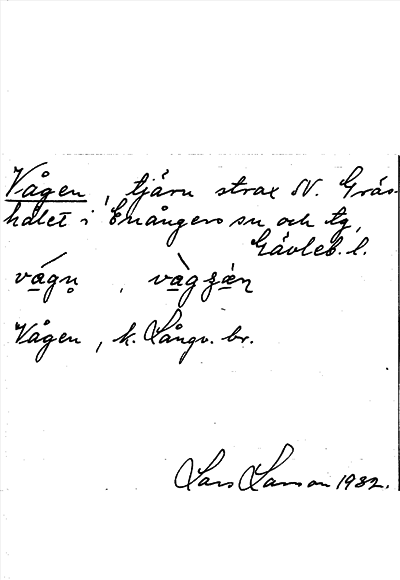 Vågen, tjärn strax SV. Gräs-
hålet i Enångers sn och tg,
Gävleb. l.
Vågen, k. Långv. br.
Lars Larson 1932.